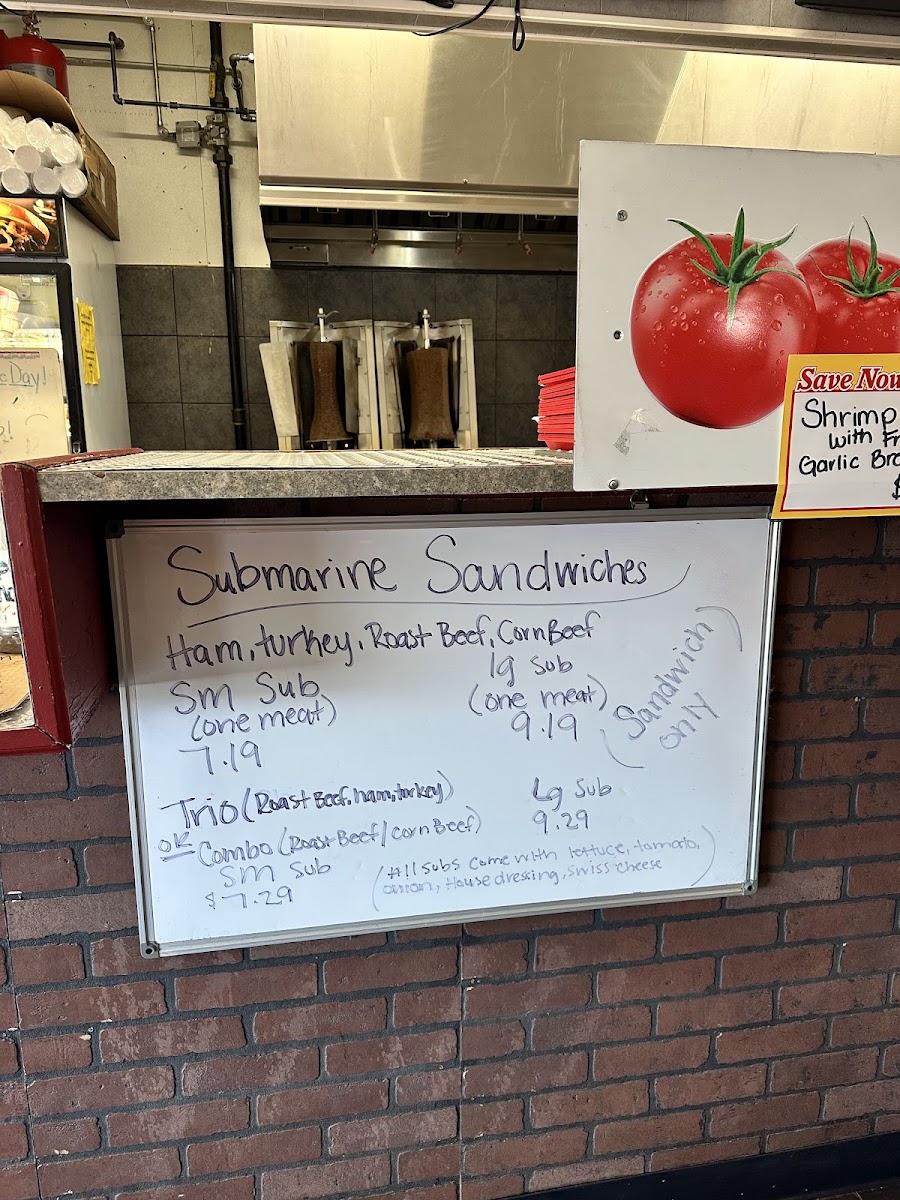 c Day!
Save Now
Shrimp
with Fr
Garlic Bre
$
Submarine Sandwiches
Ham, turkey, Roast Beef, Corn Beef
Sm Sub
(one meat)
7.19
lg Sub
(one meat)
9.19
(Sandwich
only)
Trio (Roast Beef, ham, turkey)
or
Combo (Roast Beef/corn Beef)
Sm Sub
$7.29
Lg Sub
9.29
(All subs come with lettuce, tomato,
onion, House dressing, swiss cheese)